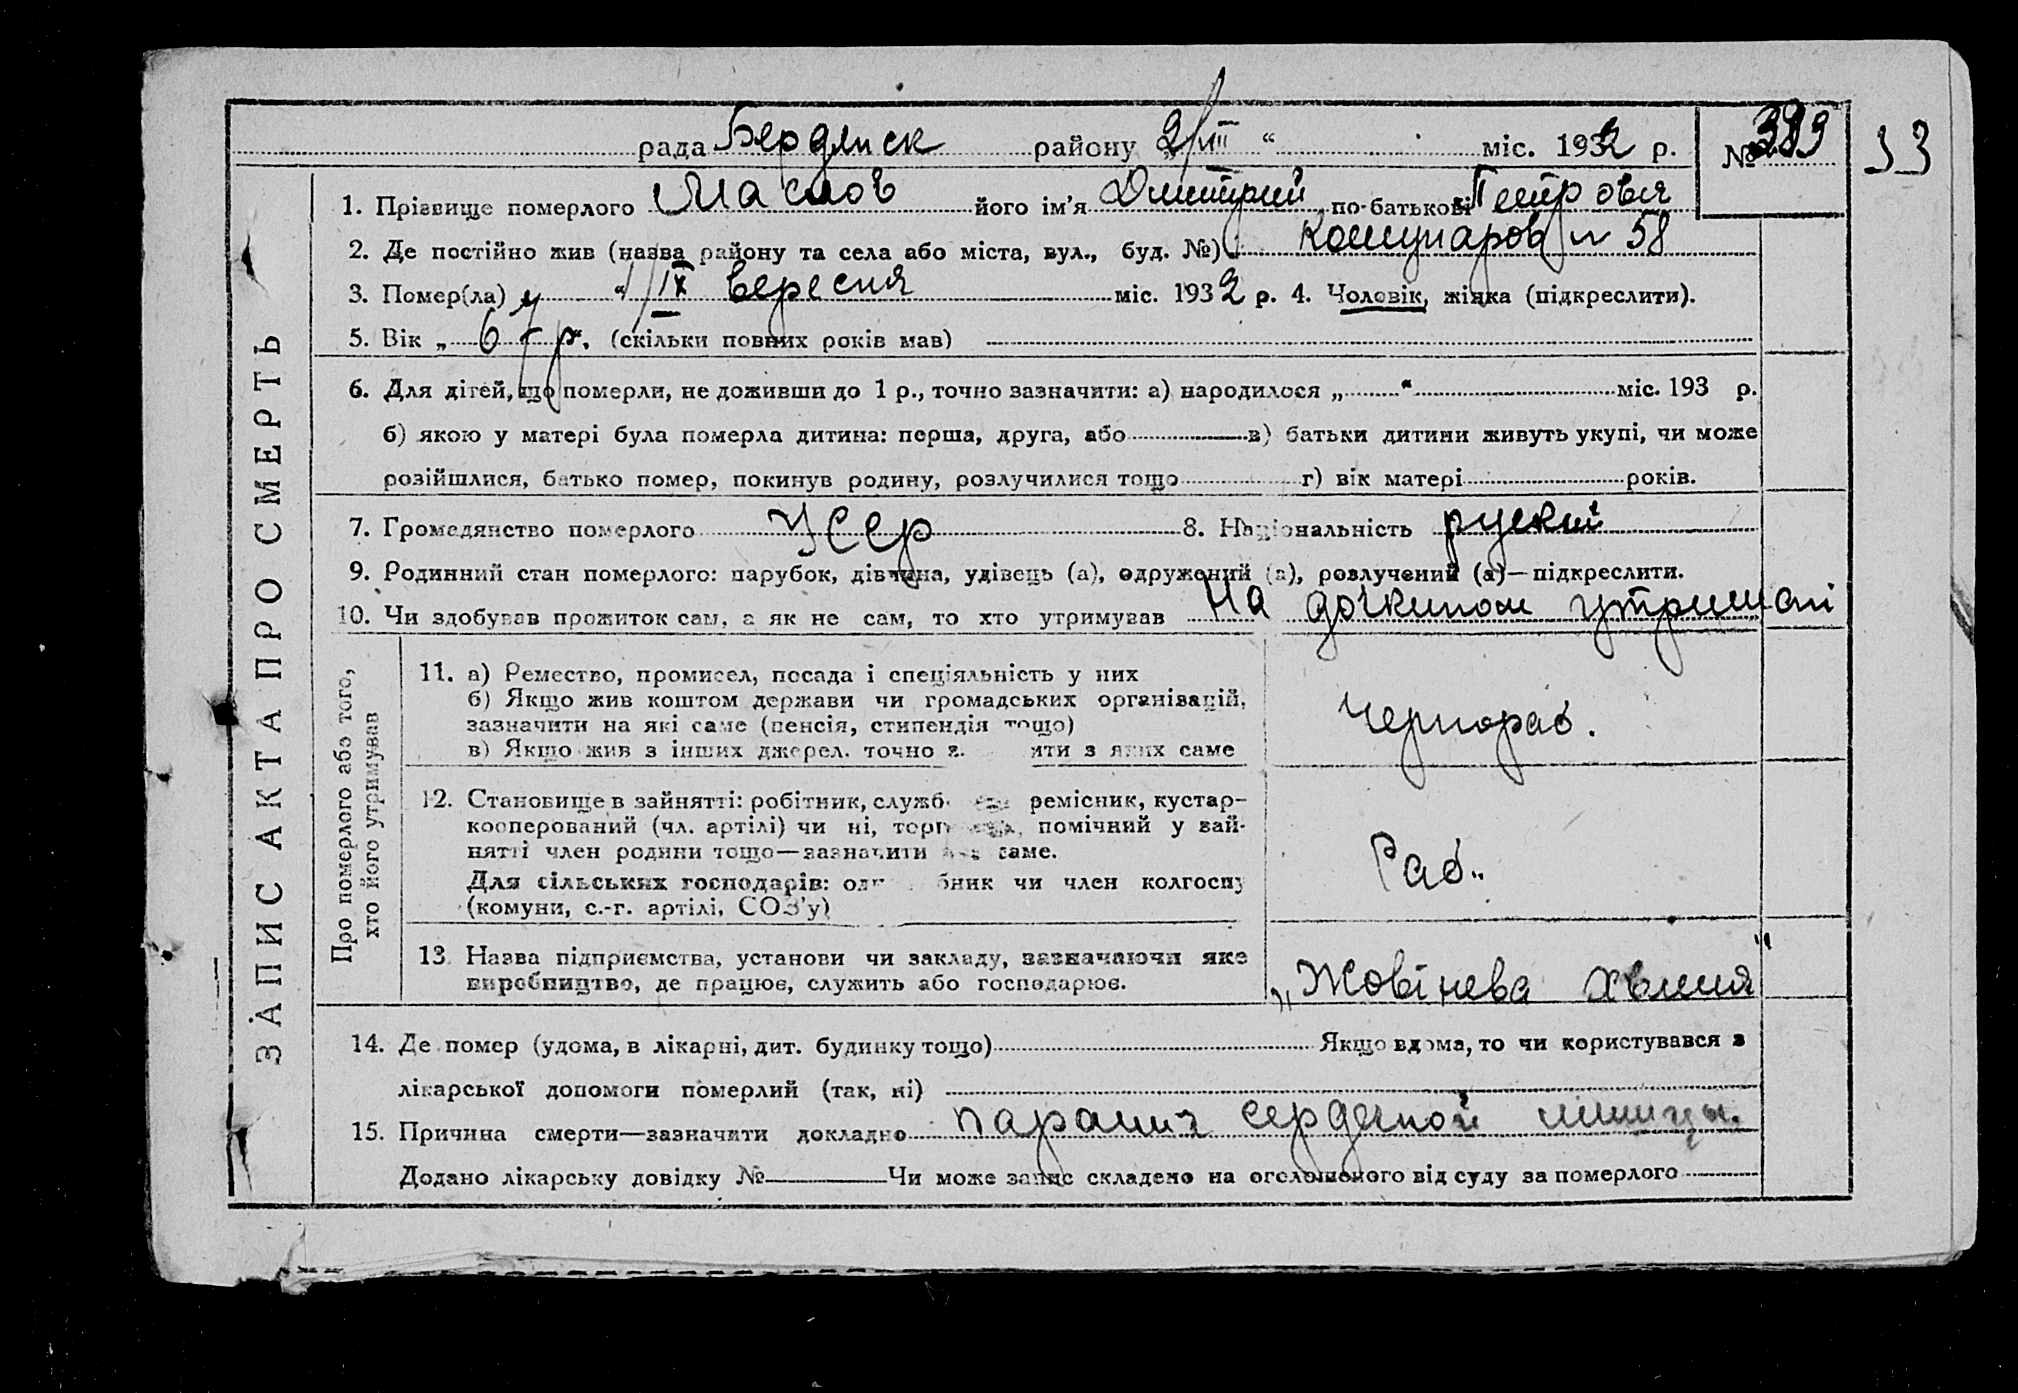 рада Бердянск району „2/VIII“ міс. 1932 р. № 389 33
1. Прізвище померлого Маслов його ім'я Дмитрий по-батькові Петровя
2. Де постійно жив (назва району та села або міста, вул., буд. №) Комунаров № 58
3. Помер(ла) у „1/IX вересня міс. 1932 р. 4. Чоловік, жінка (підкреслити).
5. Вік „67 р“. (скільки повних років мав)
6. Для дітей, що померли, не доживши до 1 р., точно зазначити: а) народилося „ “ міс. 193 р.
б) якою у матері була померла дитина: перша, друга, або в) батьки дитини живуть укупі, чи може
розійшлися, батько помер, покинув родину, розлучилися тощо г) вік матері років.
7. Громадянство померлого УССР 8. Національність руский
9. Родинний стан померлого: парубок, дівчина, удівець (а), одружений (а), розлучений (а)—підкреслити.
10. Чи здобував прожиток сам, а як не сам, то хто утримував На дочкином утримані
ЗАПИС АКТА ПРО СМЕРТЬ
Про померлого або того,
хто його утримував
11. а) Ремество, промисел, посада і спеціяльність у них
б) Якщо жив коштом держави чи громадських організацій,
зазначити на які саме (пенсія, стипендія тощо)
в) Якщо жив з інших джерел, точно з ити з яких саме
Чернораб.
12. Становище в зайнятті: робітник, служб ремісник, кустар-
кооперований (чл. артілі) чи ні, торг помічний у зай-
нятті член родини тощо—зазначити саме.
Для сільських господарів: од бник чи член колгоспу
(комуни, с.-г. артілі, СОЗ'у)
Раб..
13. Назва підприємства, установи чи закладу, зазначаючи яке
виробництво, де працює, служить або господарює.
„Жовтнева Хвиля"
14. Де помер (удома, в лікарні, дит. будинку тощо) Якщо вдома, то чи користувався з
лікарської допомоги померлий (так, ні)
15. Причина смерти—зазначити докладно паралич сердечной мишцы.
Додано лікарську довідку № Чи може запис складено на оголошеного від суду за померлого